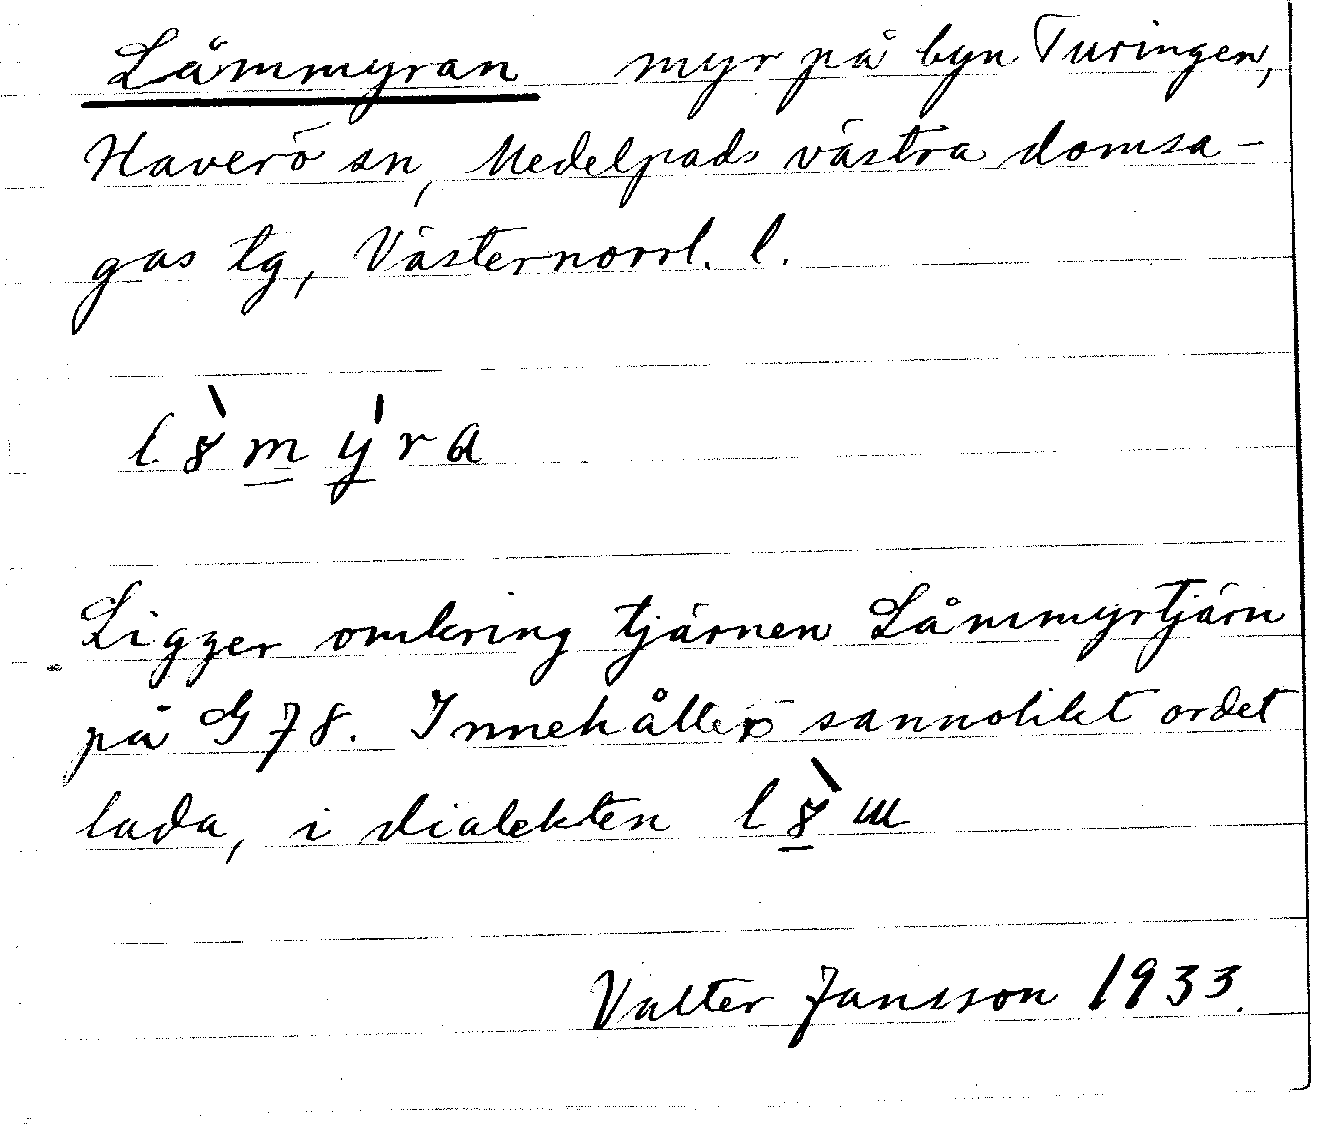 Låmmyran myr på byn Turingen,
Haverö sn, Medelpads västra domsa-
gas tg, Västernorrl. l.
l8̀mýra
Ligger omkring tjärnen Låmmyrtjärn
på G 78. Innehåller sannolikt ordet
lada, i dialekten l8̀
Valter Jansson 1933.